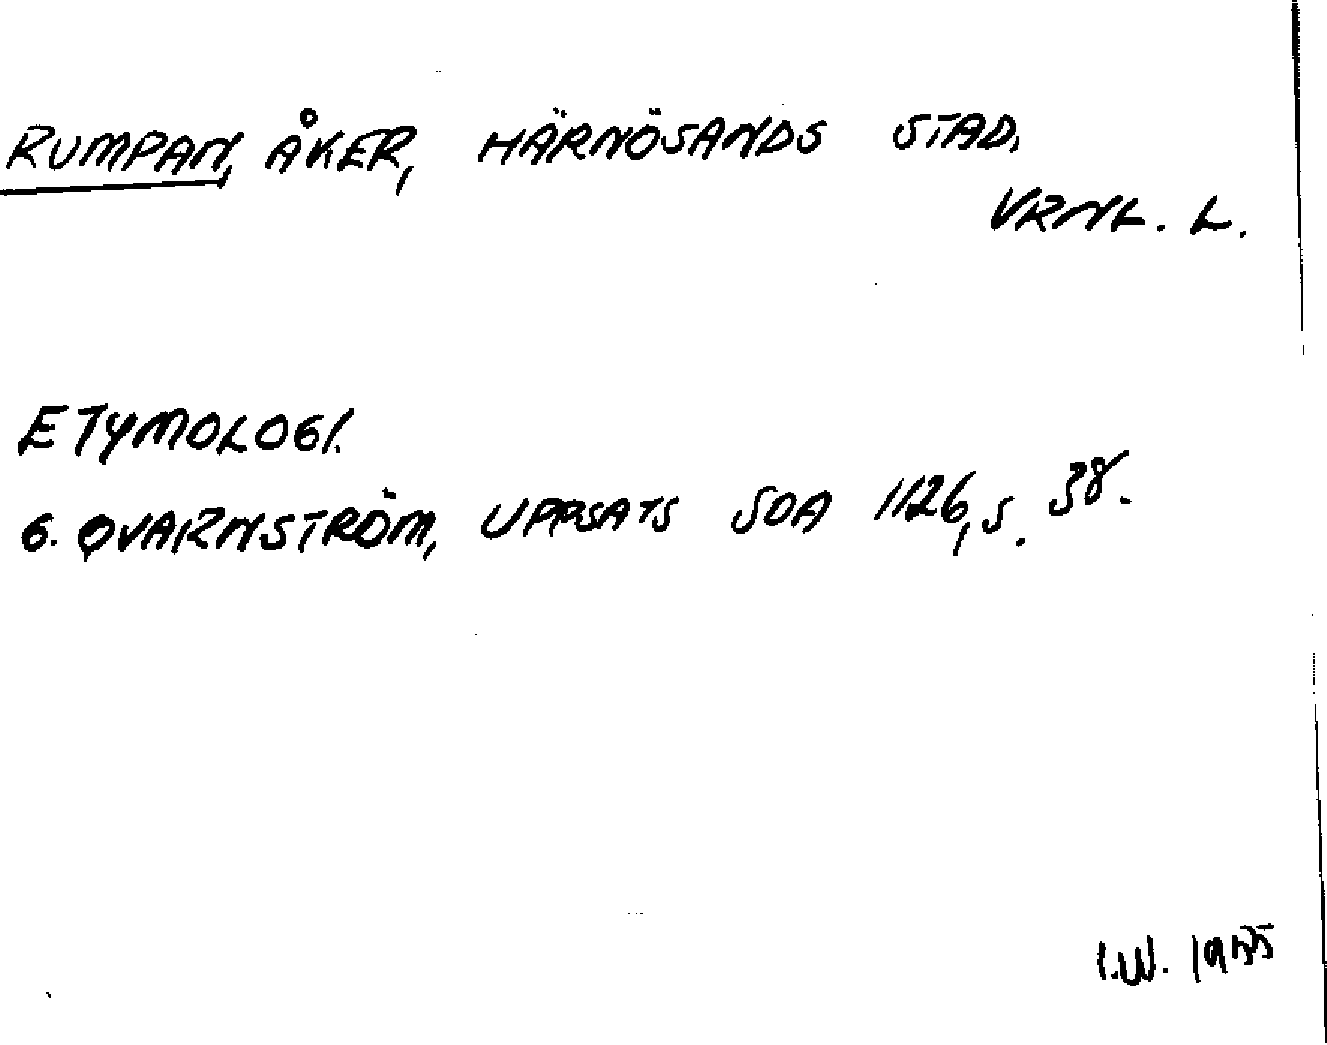 RUMPAN, ÅKER, HÄRNÖSANDS STAD,
VRNL. L.
ETYMOLOGI.
G. QVARNSTRÖM, UPPSATS SOA 1126, S. 38.
I.W. 1955